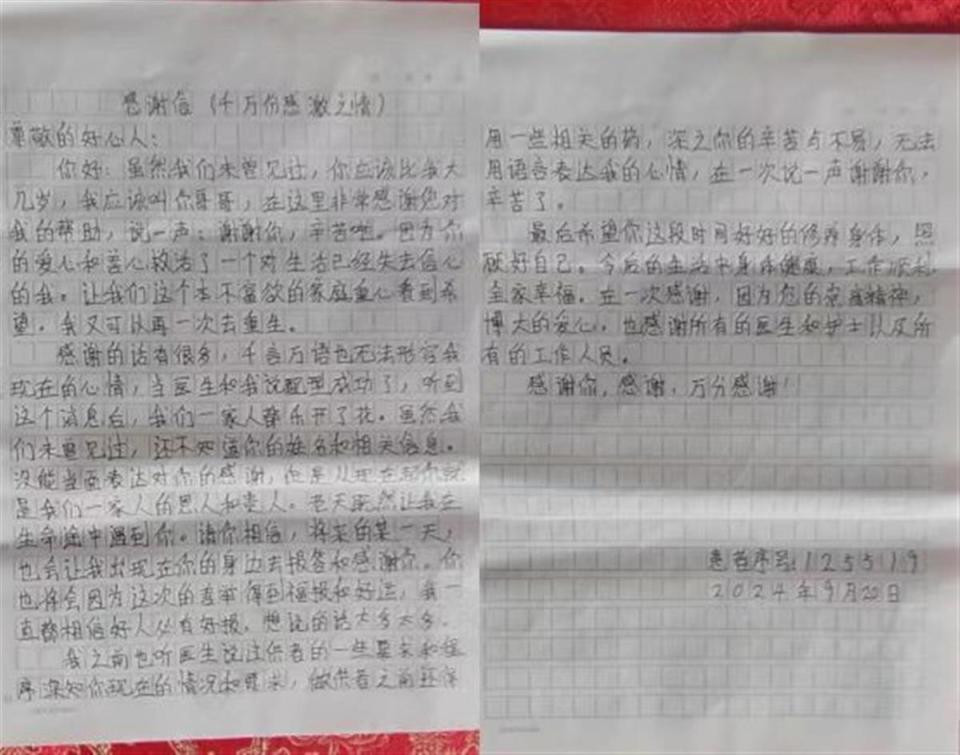 感谢信（千万份感激之情）
尊敬的好心人：
你好：虽然我们未曾见过，你应该比我大
几岁，我应该叫你哥哥，在这里非常感谢您对
我的帮助，说一声：谢谢你，辛苦啦。因为你
的爱心和善心救活了一个对生活已经失去信心
的我。让我们这个本不富欲的家庭重心看到希
望，我又可以再一次去重生。
感谢的话有很多，千言万语也无法形容我
现在的心情，当医生和我说配型成功了，听到
这个消息后，我们一家人都乐开了花。虽然我
们未曾见过，还不知道你的姓名和相关信息。
没能当面表达对你的感谢，但是从现在起你就
是我们一家人的恩人和贵人。老天既然让我在
生命途中遇到你。请你相信，将来的某一天，
也会让我出现在你的身边去报答和感谢你。你
也将会因为这次的善举得到福报和好运，我一
直都相信好人必有好报，想说的话太多太多。
我之前也听医生说过供者的一些要求和程
序深知你现在的情况和要求，做供者之前还得
用一些相关的药，深之你的辛苦与不易，无法
用语言表达我的心情，在一次说一声谢谢你，
辛苦了。
最后希望你这段时间好好的修养身体，照
顾好自己。今后的生活中身体健康，工作顺利
全家幸福。在一次感谢，因为您的奉献精神，
博大的爱心，也感谢所有的医生和护士以及所
有的工作人员。
感谢你，感谢，万分感谢！！
患者序号：125519
2024年9月20日